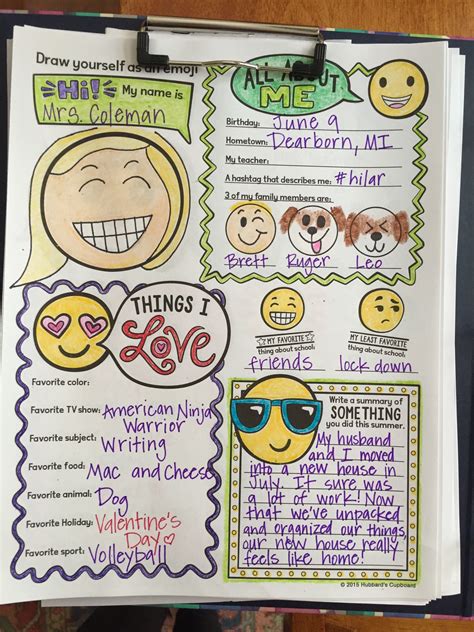 Draw yourself as an emoji
Hi! My name is
Mrs. Coleman
ALL ABOUT
ME
Birthday: June 9
Hometown: Dearborn, MI
My teacher:
A hashtag that describes me: #hilar
3 of my family members are:
Brett Ruger Leo
THINGS I
Love
Favorite color:
Favorite TV show: American Ninja
Warrior
Favorite subject: Writing
Favorite food: Mac and Cheese
Favorite animal: Dog
Favorite Holiday: Valentine's
Day
Favorite sport: Volleyball
MY FAVORITE
thing about school:
friends
MY LEAST FAVORITE
thing about school:
lock down
Write a summary of
SOMETHING
you did this summer.
My husband
and I moved
into a new house in
July. It sure was
a lot of work! Now
that we've unpacked
and organized our things,
our new house really
feels like home!
© 2015 Hubbard's Cupboard